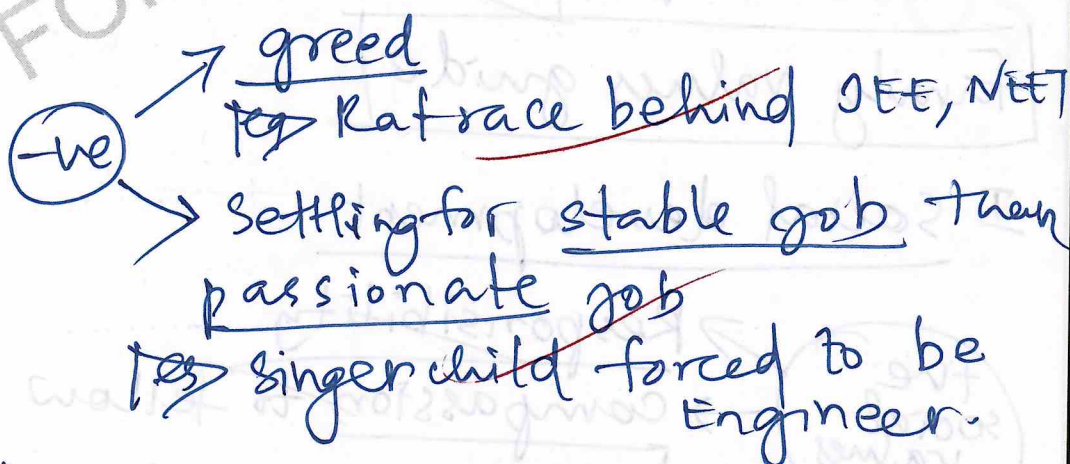 FO
greed
eg Ratrace behind JEE, NEET
-ve
Settling for stable job than
passionate job
eg singer child forced to be
Engineer.